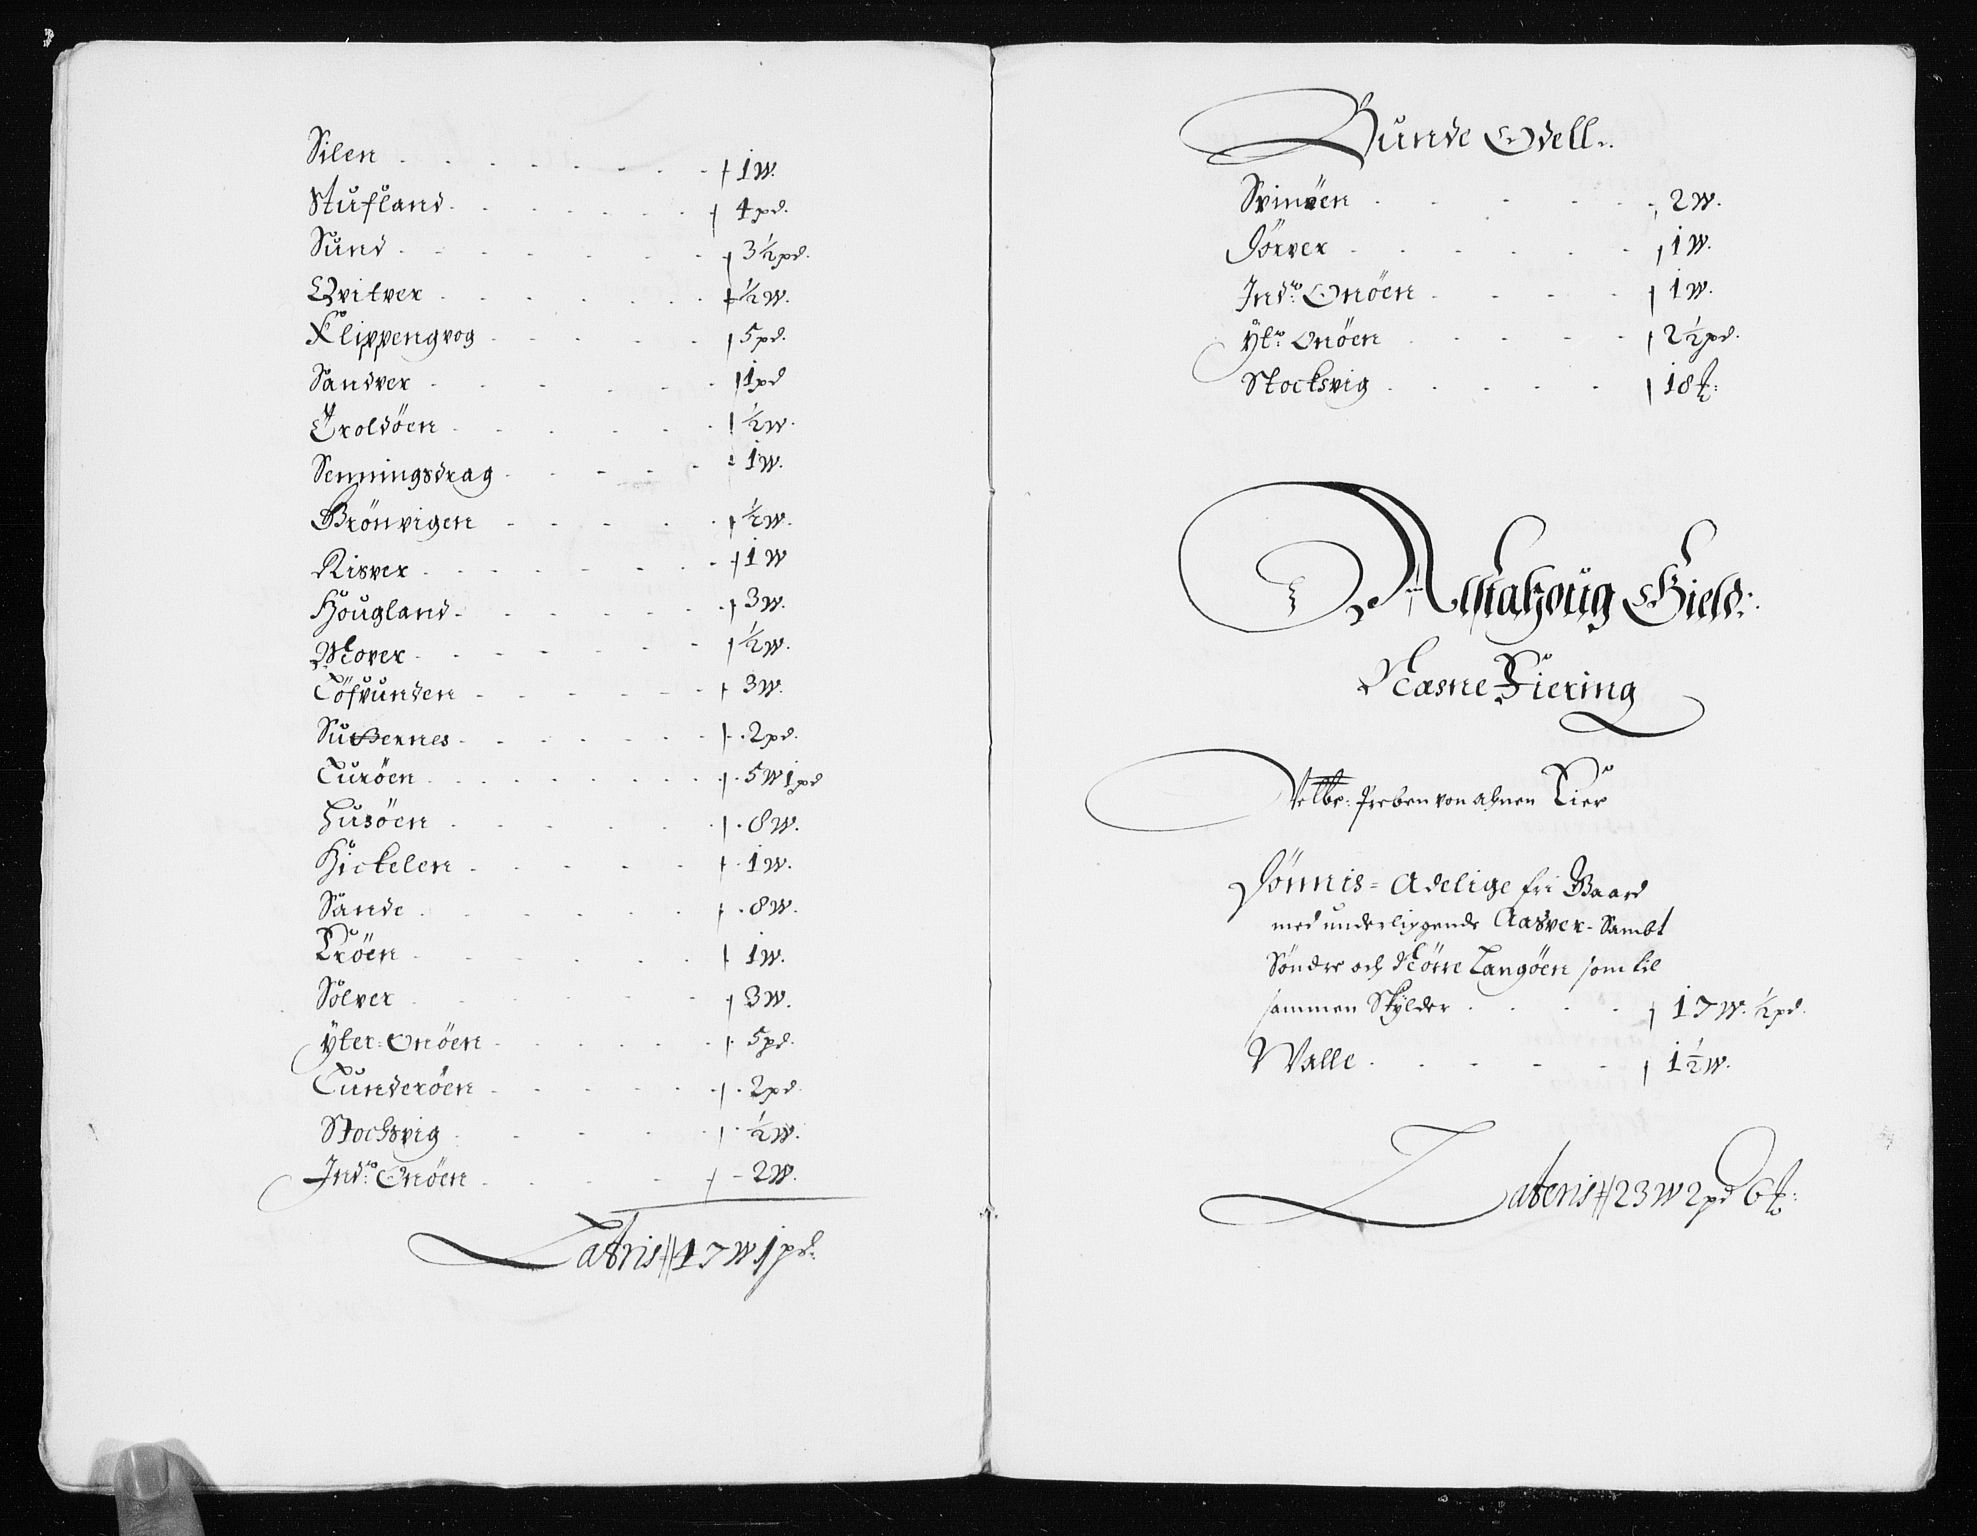 Silen . . . . . . . 1 W.
Stufland . . . . . . 4 pd.
Sund . . . . . . . 3½ pd.
Qvitver . . . . . . ½ W.
Klippengvog . . . . . 5 pd.
Sandver . . . . . . 1 pd
Troldöen . . . . . . ½ W.
Senningsdrag . . . . . 1 W.
Grönvigen . . . . . ½ W.
Risver . . . . . . . 1 W
Hougland . . . . . . 3 W.
Mover . . . . . . . ½ W.
Töfvunden . . . . . 3 W.
Sußernes . . . . . . 2 pd.
Turöen . . . . . . . 5 W 1 pd
Husöen . . . . . . 8 W.
Hickelen . . . . . . 1 W.
Sande . . . . . . . 8 W.
Tröen . . . . . . . 1 W.
Solver . . . . . . . 3 W.
Yter Onöen . . . . . 5 pd.
Tunderöen . . . . . 2 pd.
Stochsvig . . . . . . ½ W.
Indr: Onöen . . . . . 2 W.
Lateris 47 W 1 pd:
Bunde Odell:
Svinöen . . . . . . 2 W.
Dörver . . . . . . 1 W.
Indr: Onöen . . . . 1 W.
Ytr: Onöen . . . . 2½ pd.
Stocksvig . . . . . 18 ℔:
Alstahoug Gield:
Næsne Fiering
Velbr: Preben von Ahnen Tier
Dönnis = Adelige fri Gaard
med underliggende Aasver - Sambt
Söndre och Nörre Langöen som til
sammen Skylder . . . . 17 W. ½ pd.
Walle . . . . . 1½ W.
Lateris 23 W 2 pd 6 ℔: